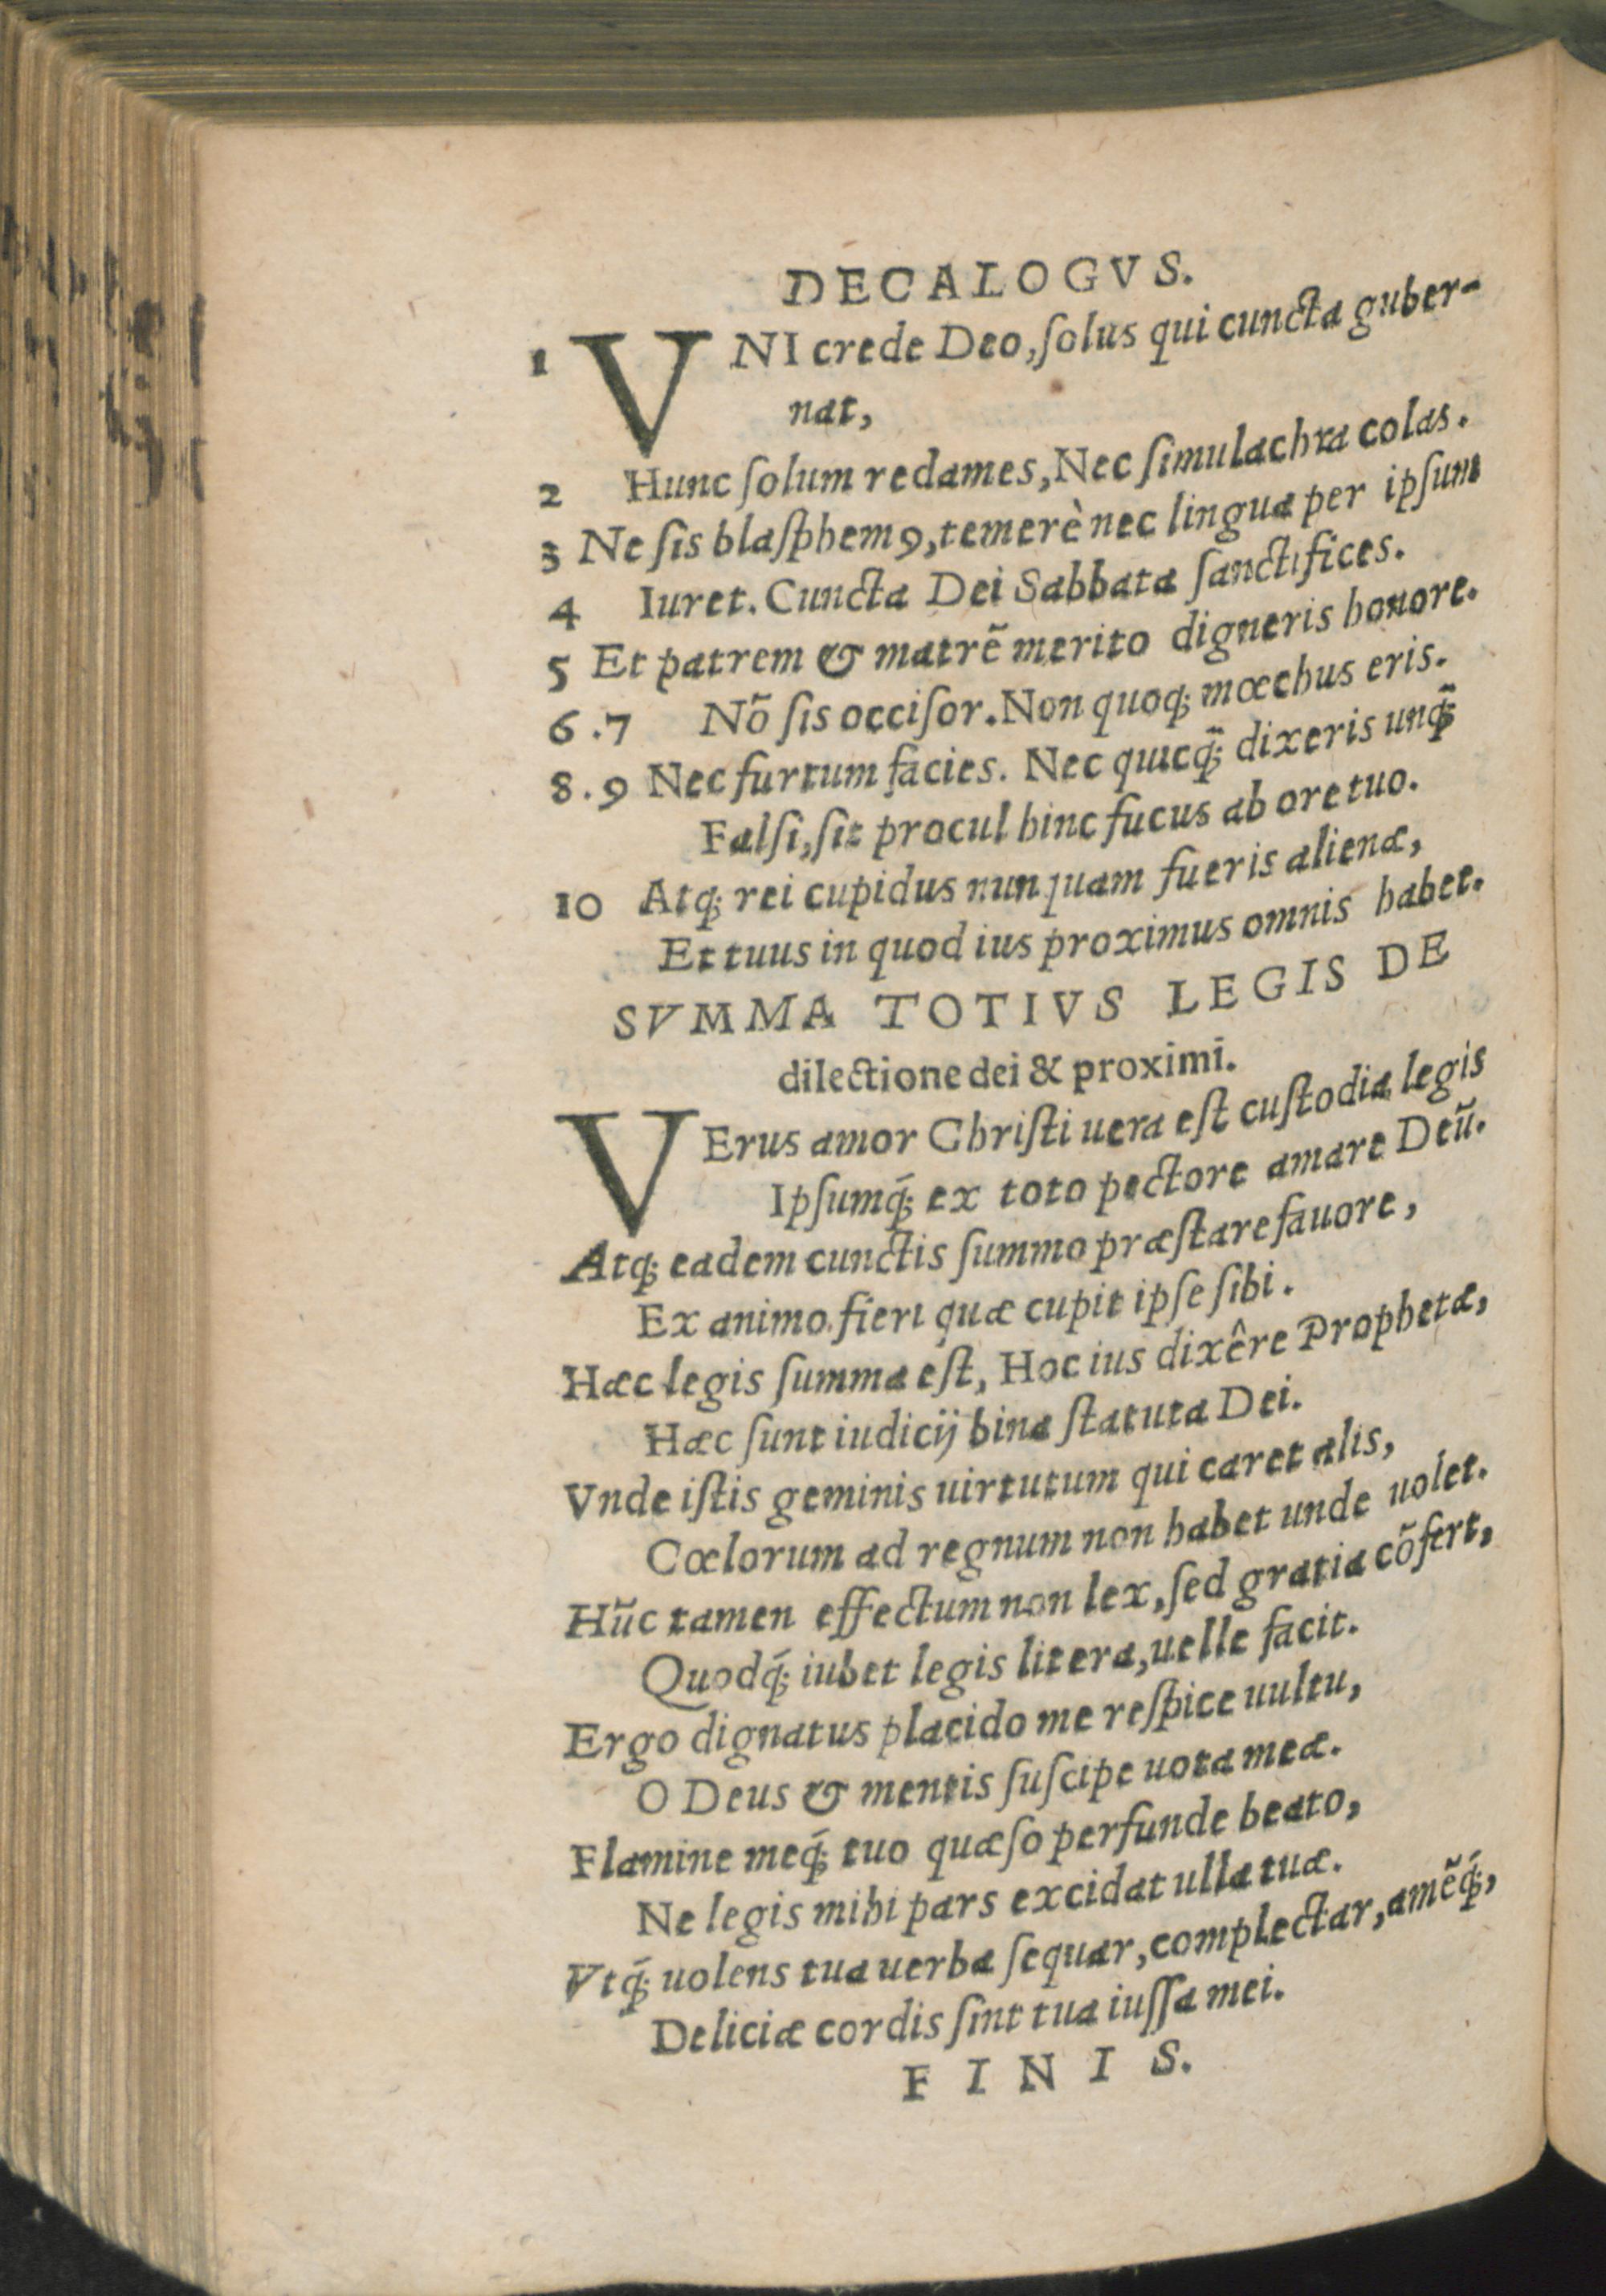 DECALOGVS.
1 VNI crede Deo, ſolus qui cuncta guber-
nat,
2 Hunc ſolum redames, Nec ſimulachra colas.
3 Ne ſis blaſphemꝰ, temerè nec lingua per ipſum
4 Iuret. Cuncta Dei Sabbata ſanctifices.
5 Et patrem & matrẽ merito digneris honore.
6.7 Nõ ſis occiſor. Non quoq; mœchus eris.
8.9 Nec furtum facies. Nec quicq̃; dixeris unq̃;
Falſi, ſit procul hinc fucus ab ore tuo.
10 Atq; rei cupidus nunquam fueris alienæ,
Et tuus in quod ius proximus omnis habet.
SVMMA TOTIVS LEGIS DE
dilectione dei & proximi.
VErus amor Chriſti uera eſt cuſtodia legis
Ipſumq́; ex toto pectore amare Deũ.
Atq; eadem cunctis ſummo præſtare fauore,
Ex animo fieri quæ cupit ipſe ſibi.
Hæc legis ſumma eſt, Hoc ius dixêre Prophetæ,
Hæc ſunt iudicij bina ſtatuta Dei.
Vnde iſtis geminis uirtutum qui caret alis,
Cœlorum ad regnum non habet unde uolet.
Hũc tamen effectum non lex, ſed gratia cõfert,
Quodq́; iubet legis litera, uelle facit.
Ergo dignatus placido me reſpice uultu,
O Deus & mentis ſuſcipe uota meæ.
Flamine meq́; tuo quæſo perfunde beato,
Ne legis mihi pars excidat ulla tuæ.
Vtq́; uolens tua uerba ſequar, complectar, amẽq́;,
Deliciæ cordis ſint tua iuſſa mei.
FINIS.